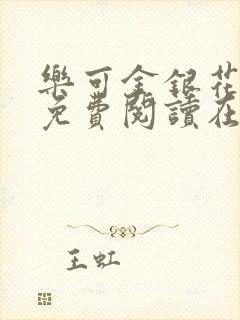 樂可金銀花
免費閱讀在
王虹